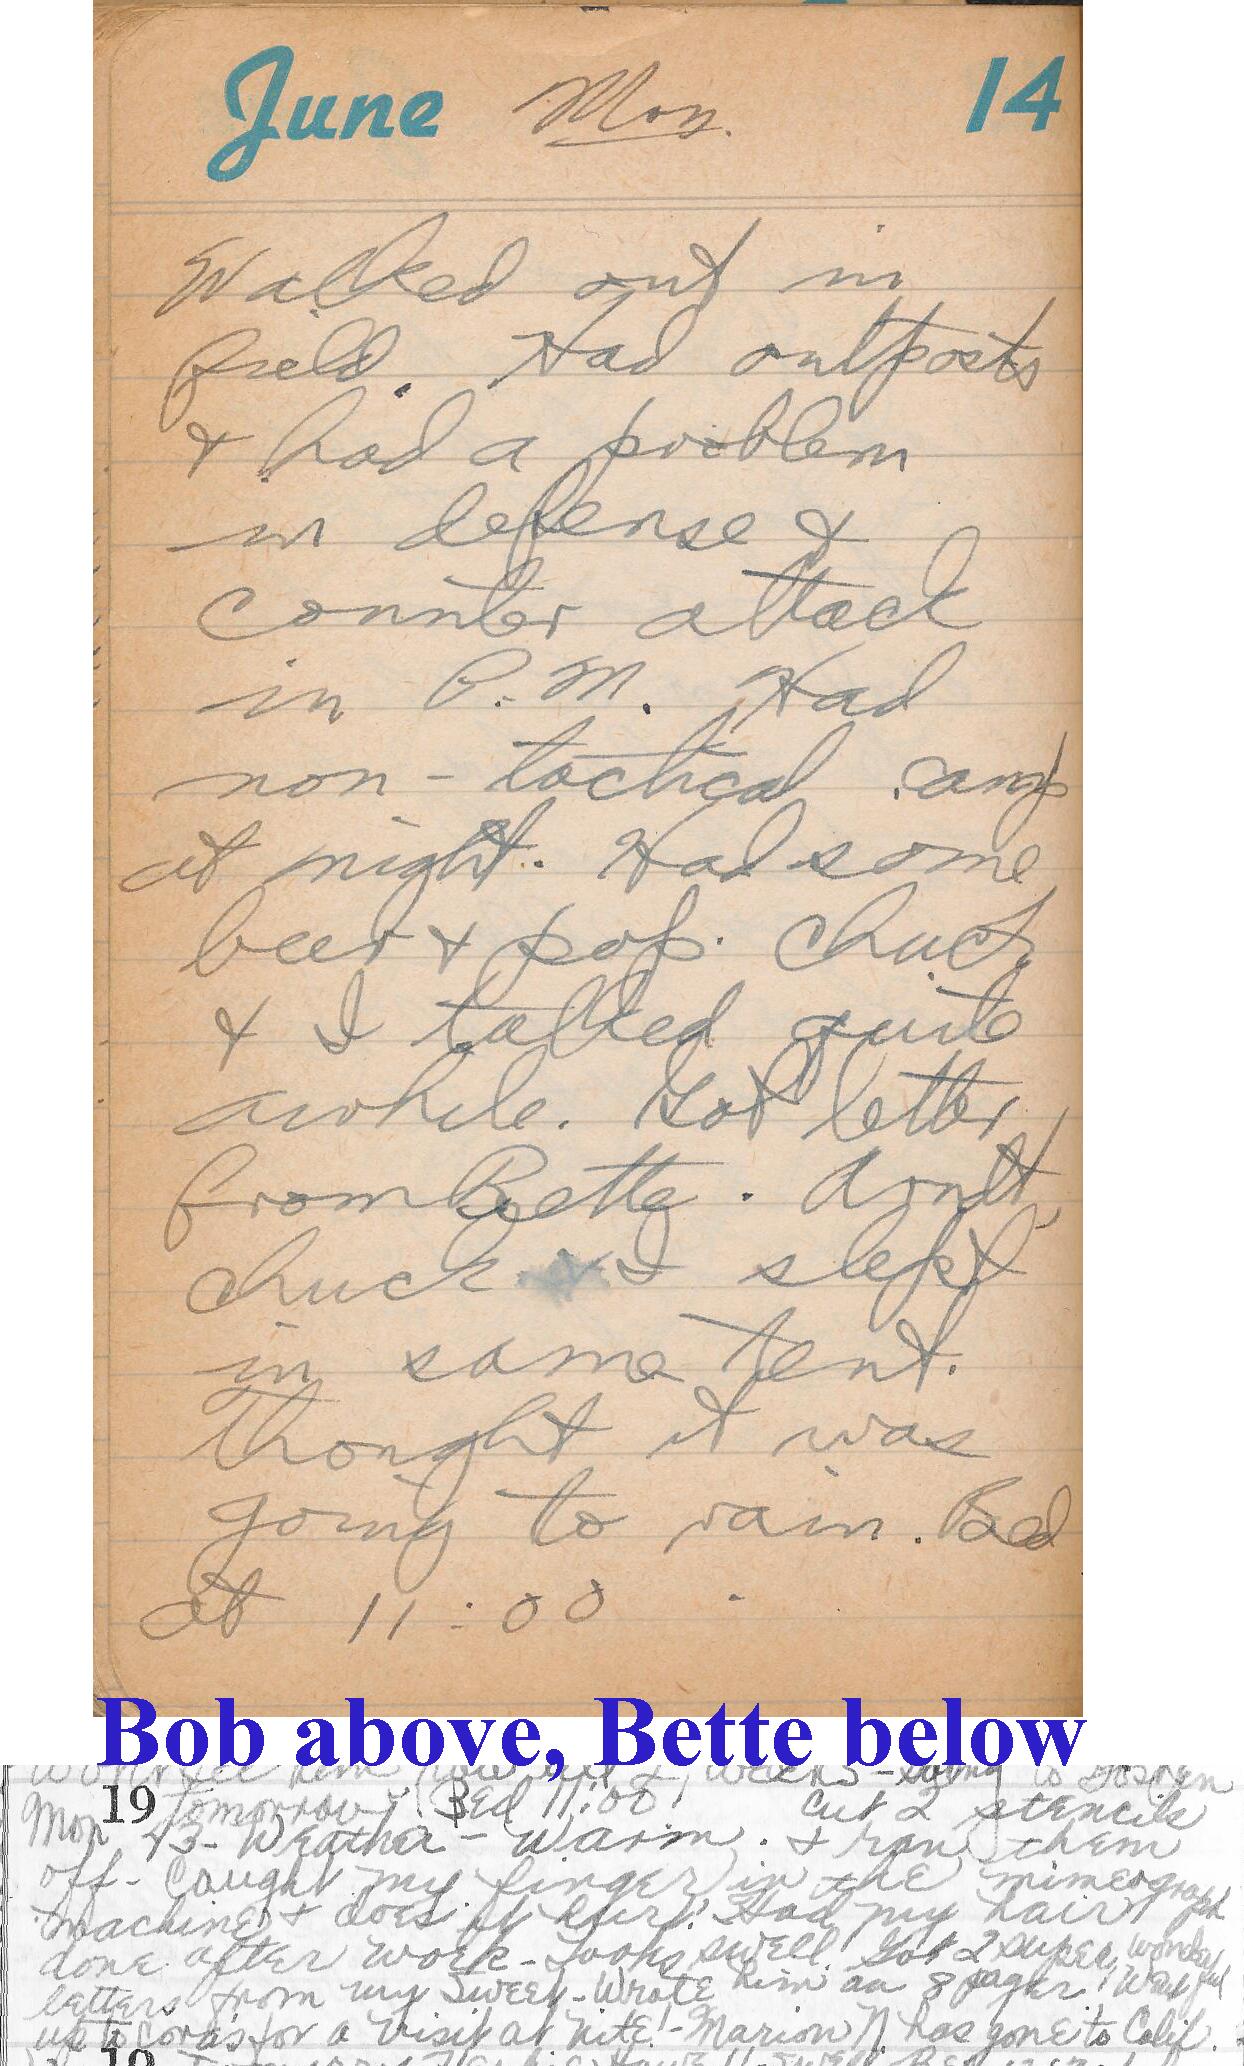 June Mon. 14
Walked out in
field. Had outposts
& had a problem
in defense &
counter attack
in P.M. Had
non-tactical camp
at night. Had some
beer & pop. Chuck
& I talked quite
awhile. Got letter
from Bette. Arndt,
Chuck & I slept
in same tent.
Thought it was
going to rain. Bed
at 11:00.
Bob above, Bette below
him weeks - going to Goshen
19 tomorrow! Bed 11:00! Cut 2 stencils
Mon 43 - Weather - Warm. & ran them
off - Caught my finger in the mimeograph
machine & does it hurt! Had my hair
done after work - looks swell! Got 2 super, wonderful
letters from my Sweet - Wrote him an 8 pager! Went
up to Cora's for a visit at nite! - Marion N has gone to Calif.
19